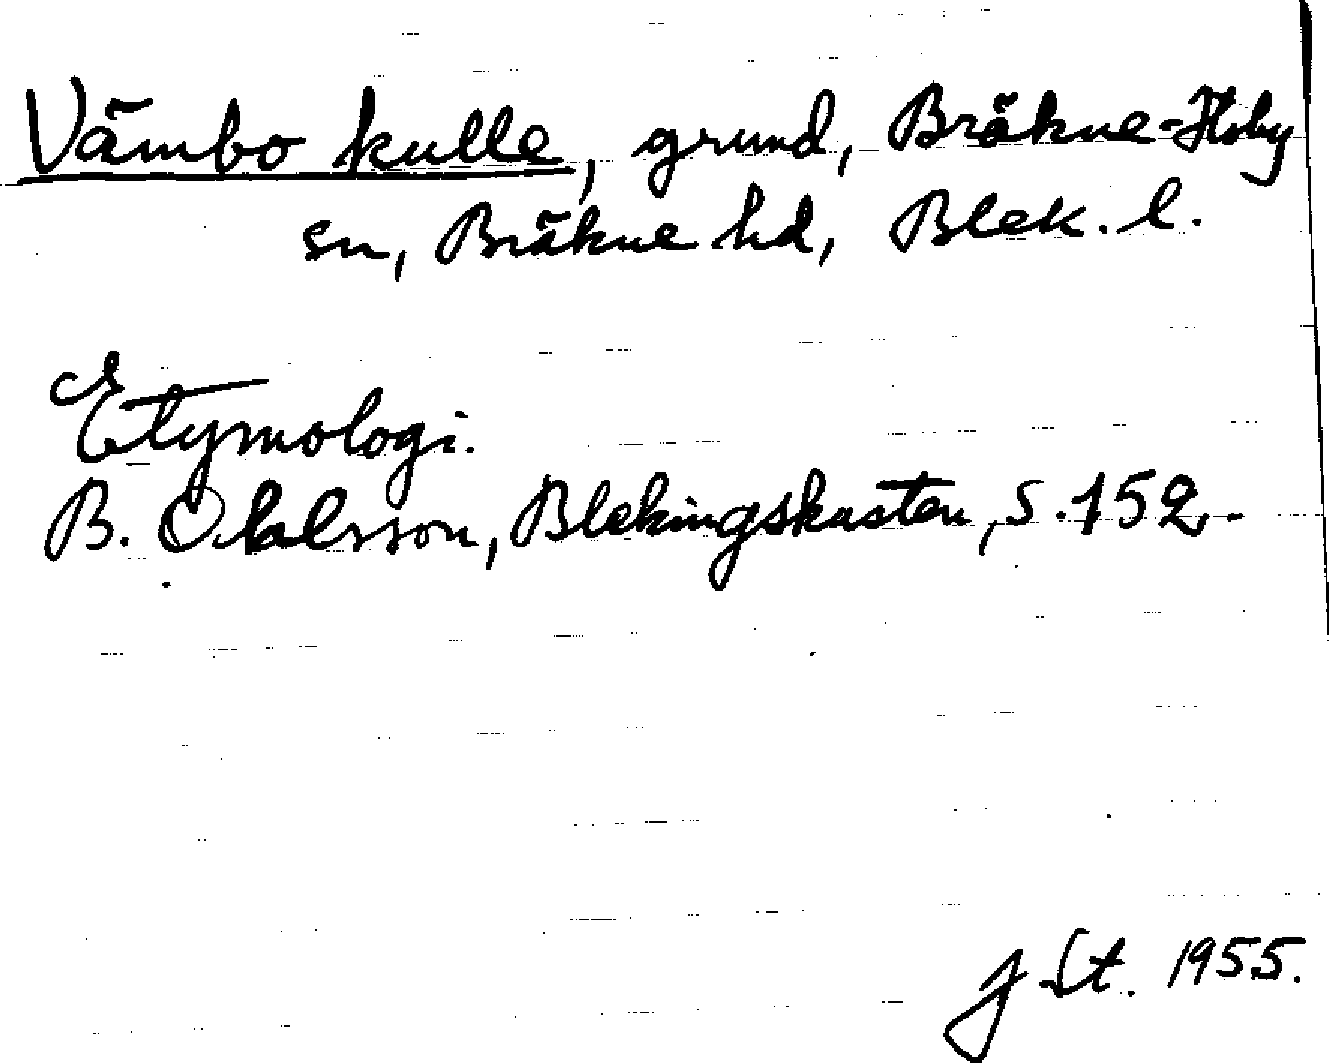 Vämbo kulle, grund, Bräkne-Hoby
sn, Bräkne hd, Blek. l.
Etymologi.
B. Olalsson, Blekingskusten, s. 152.
J. St. 1955.